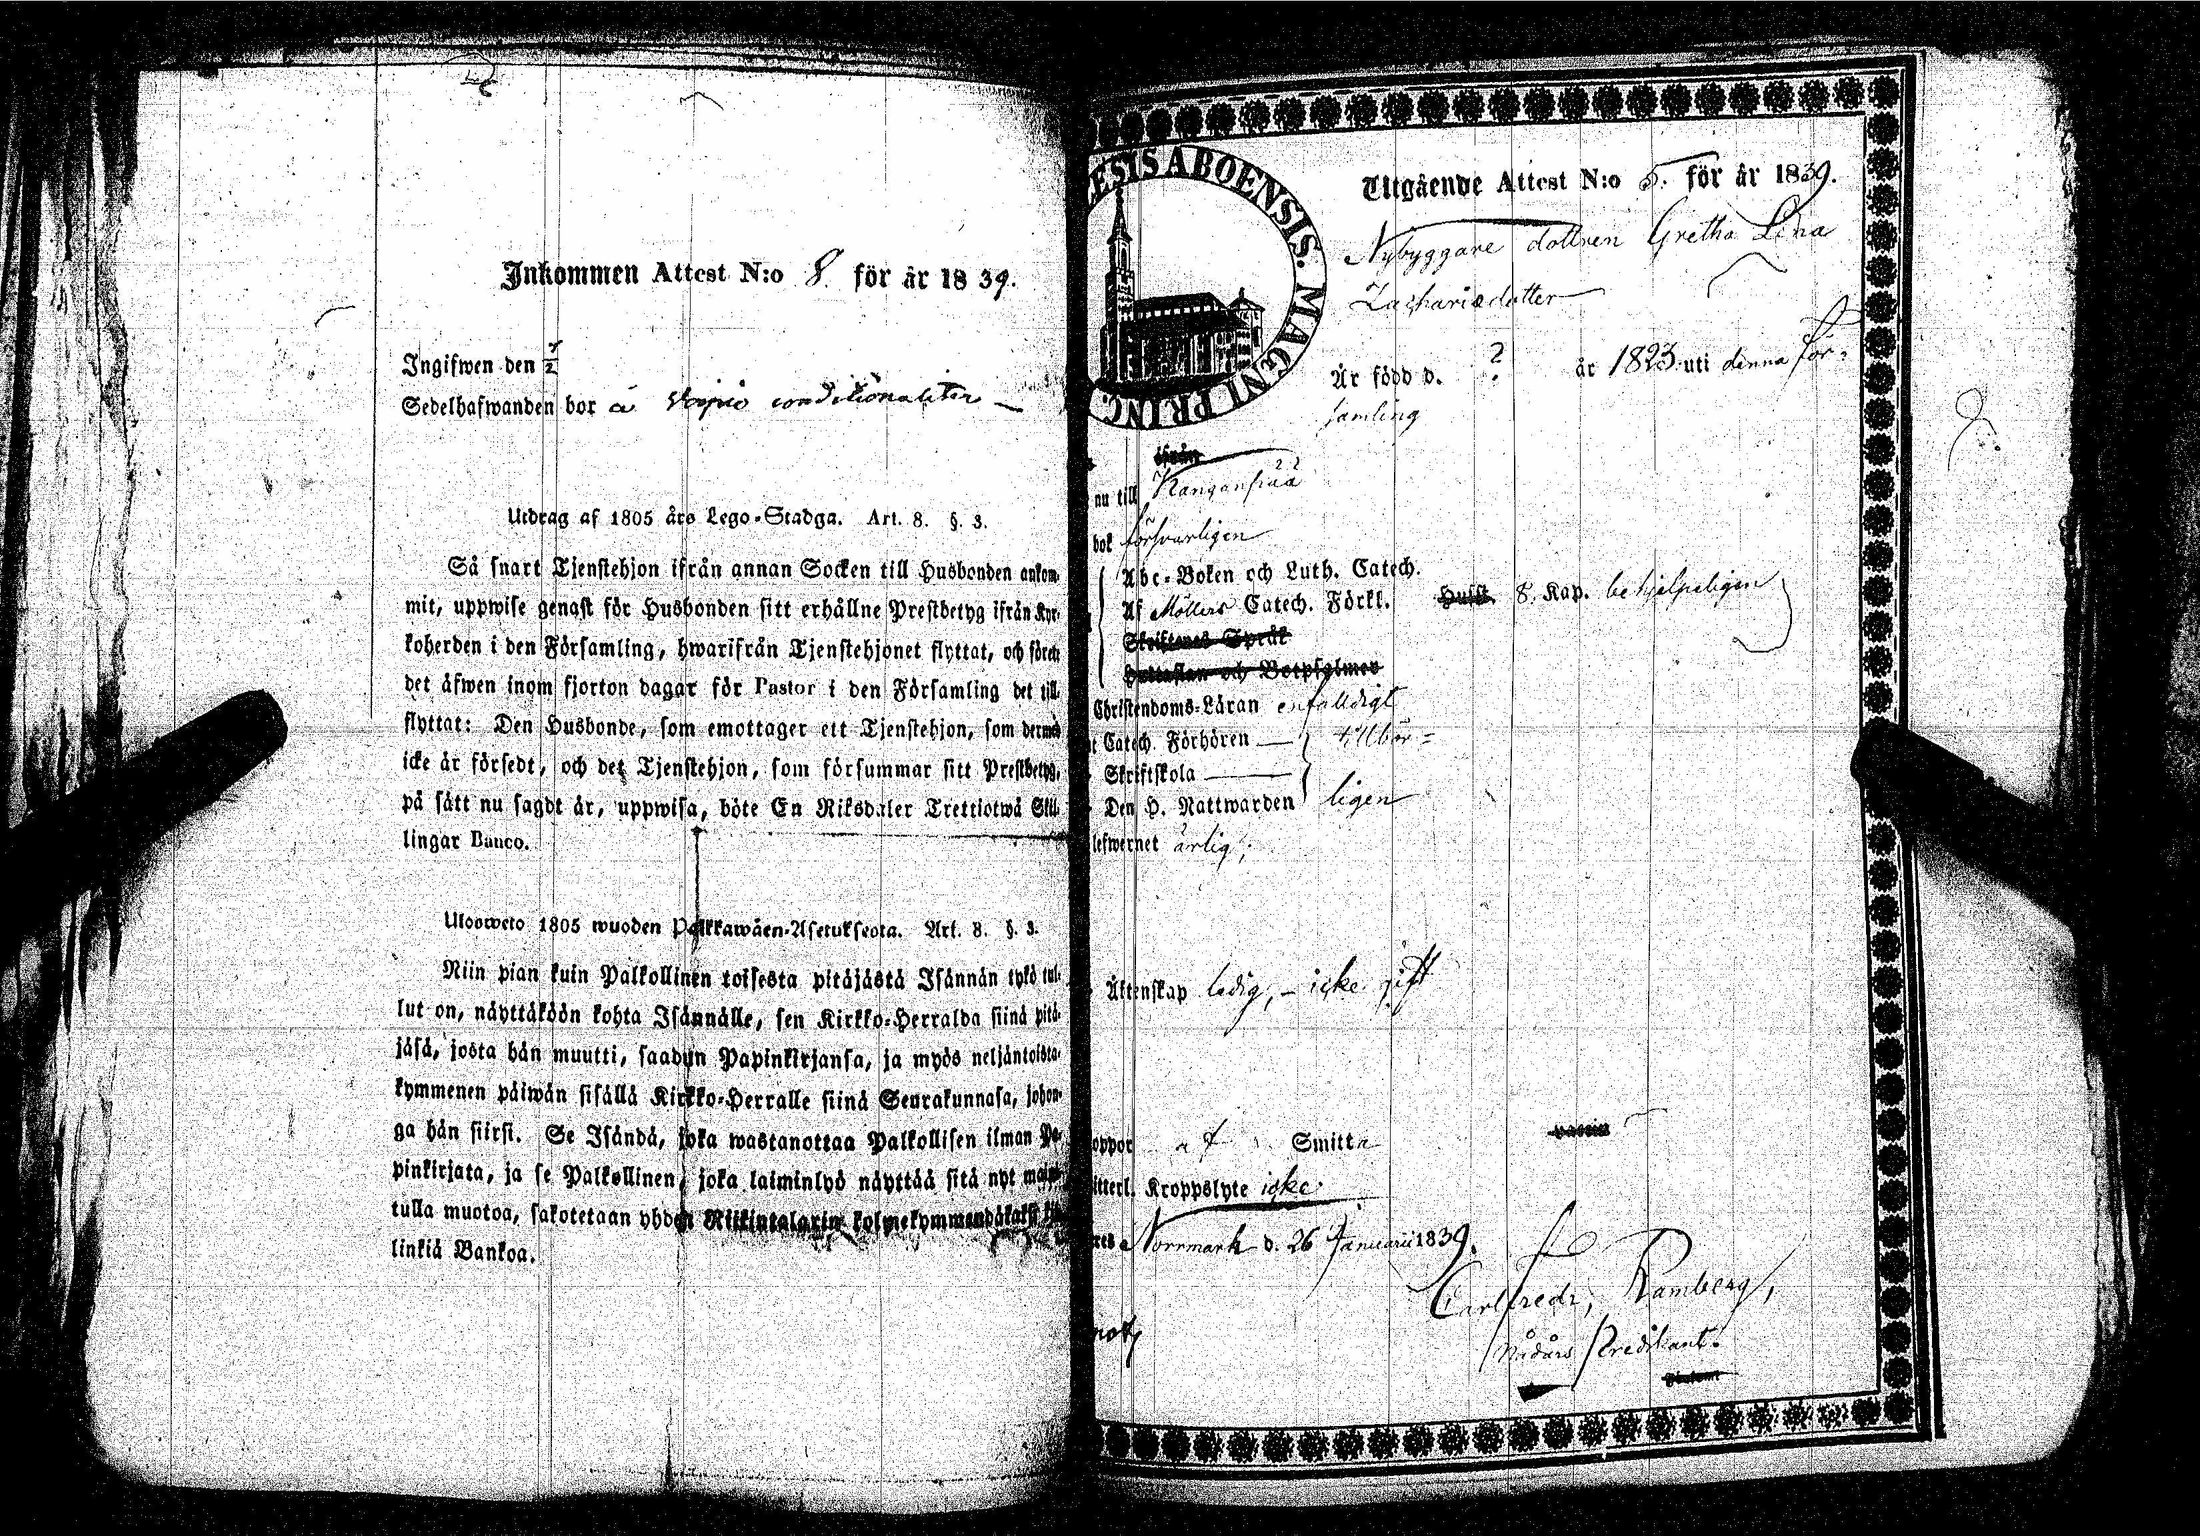 Inkommen Attest N:o 8. för år 1839.
Ingifwen den 7/2
Sedelhafwanden bor à conditionaliter
Utdrag af 1805 års Lego-Stadga. Art. 8. §. 3.
Så snart Tjenstehjon ifrån annan Socken till Husbonden ankom-
mit, uppwise genast för Husbonden sitt erhållne Prestbetyg ifrån Kyr-
koherden i den Församling, hwarifrån Tjenstehjonet flyttat, och förete
det äfwen inom fjorton dagar för Pastor i den Församling det till
flyttat: Den Husbonde, som emottager ett Tjenstehjon, som dermed
icke är försedt, och det Tjenstehjon, som försummar sitt Prestbetyg,
på sätt nu sagdt är, uppwisa, böte En Riksdaler Trettiotwå Skil-
lingar Banco.
Ulosweto 1805 wuoden Palkkawäen-Asetuksesta. Art. 8. §. 3.
Niin pian kuin Palkollinen toisesta pitäjästä Isännän tykö tul-
lut on, näyttäköön kohta Isännälle, sen Kirkko-Herralda siinä pitä-
jäsä, josta hän muutti, saadun Papinkirjansa, ja myös neljäntoista-
kymmenen päiwän sisällä Kirkko-Herralle siinä Seurakunnasa, johon-
ga hän siirsi. Se Isändä, joka wastanottaa Palkollisen ilman Pa-
pinkirjata, ja se Palkollinen, joka laiminlyö näyttää sitä nyt
tulla muotoa, sakotetaan yhden Riikintalarin kolmekymmendäkaksi
linkiä Bankoa.
ESIS ABOENSIS. MAGNI PRINC.
Utgående Attest N:o 5. för år 1839.
Nybyggare dottren Gretha Lena
Zachariædotter
Är född d. ? år 1823 uti denna För-
samling
ifrån
nu till Kangansuu
bok försvarligen
Abc-Boken och Luth. Catech.
Af Möllers Catech. Förkl. Hufst. 8. Kap. behjelpeligen
Skriftenes Språk
Hustaflan och Botpsalmer
Christendoms-Läran enfalldigt
Catech. Förhören tillbör-
Skriftskola
Den H. Nattwarden ligen
lefwernet ärlig;
Äktenskap ledig, - icke gift
oppor af Smitta
itterl. Kroppslyte icke
Norrmark d. 26 Januarii 1839.
Carl Fredr, Ramberg,
Nådårs Predikant.